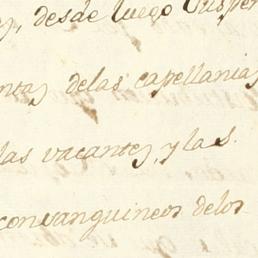 desde luego suspen
ntas delas capellanias
las vacantes, y las
convanguineos delos